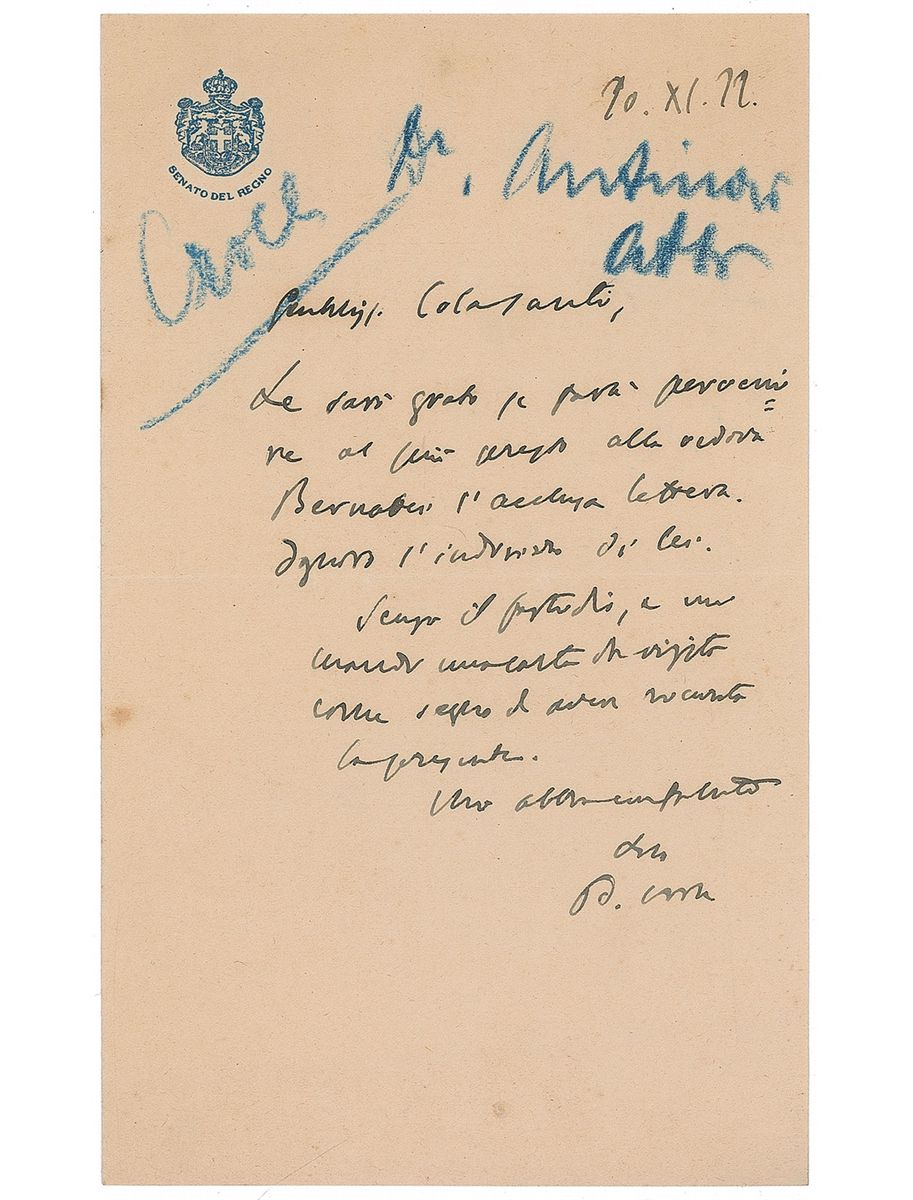 SENATO DEL REGNO
XI.
Croce Dr. Antinori
Colasanti,
Le sarò grato se farà perveni=
re al più presto alla vedova
Bernabei l'acclusa lettera.
Ignoro l'indirizzo di lei.
Scusi il fastidio, e mi
mandi una carta da visita
come segno d'aver ricevuta
la presente.
Suo
B. Croce